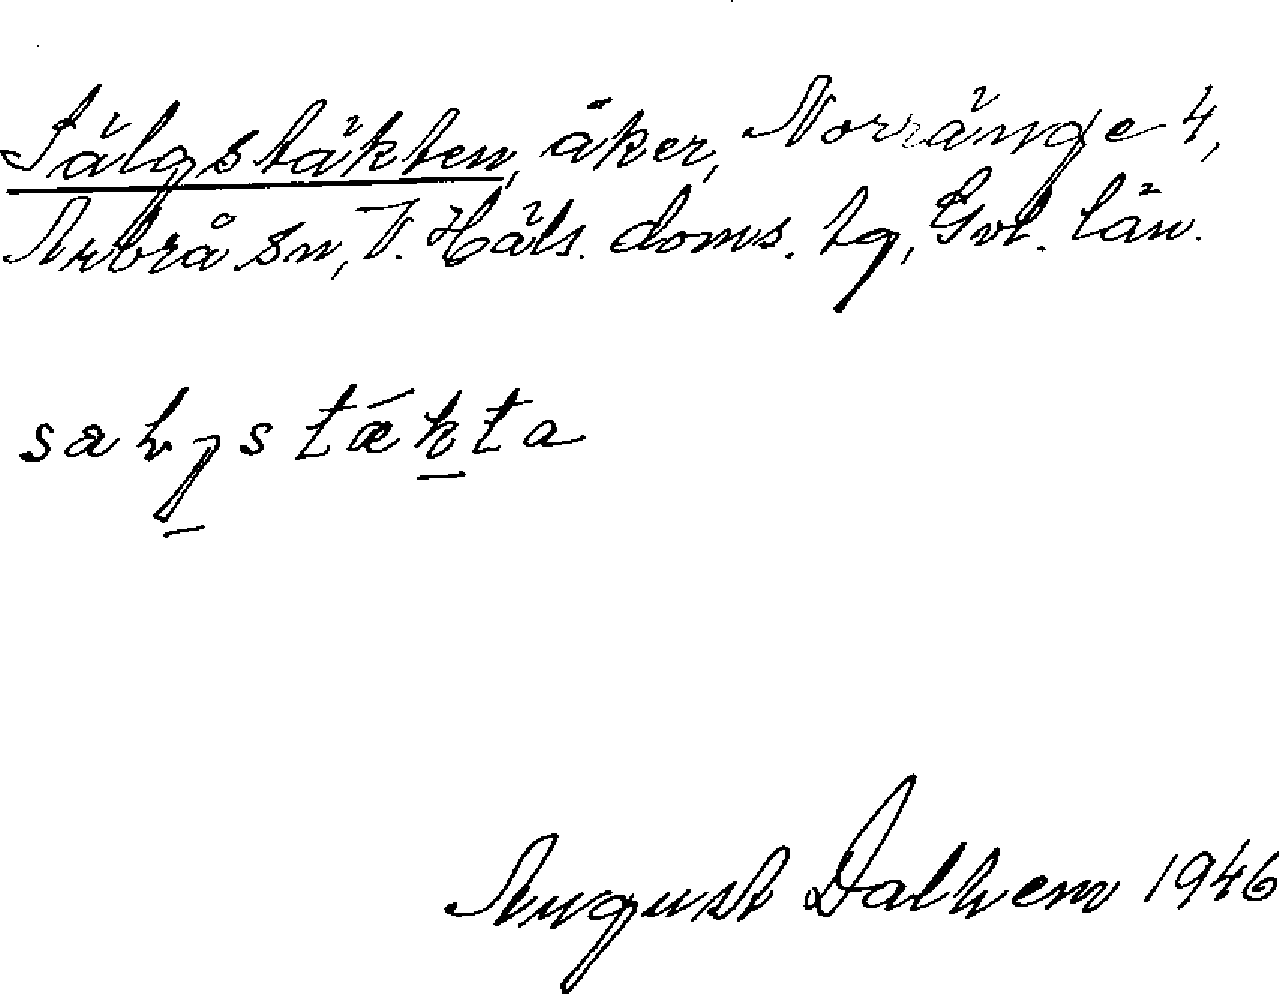 Sälgstäkten, åker, Norränge 4,
Arbrå sn, V. Häls. doms. tg, Gvl. län.
sæljstækta
August Dalhem 1946